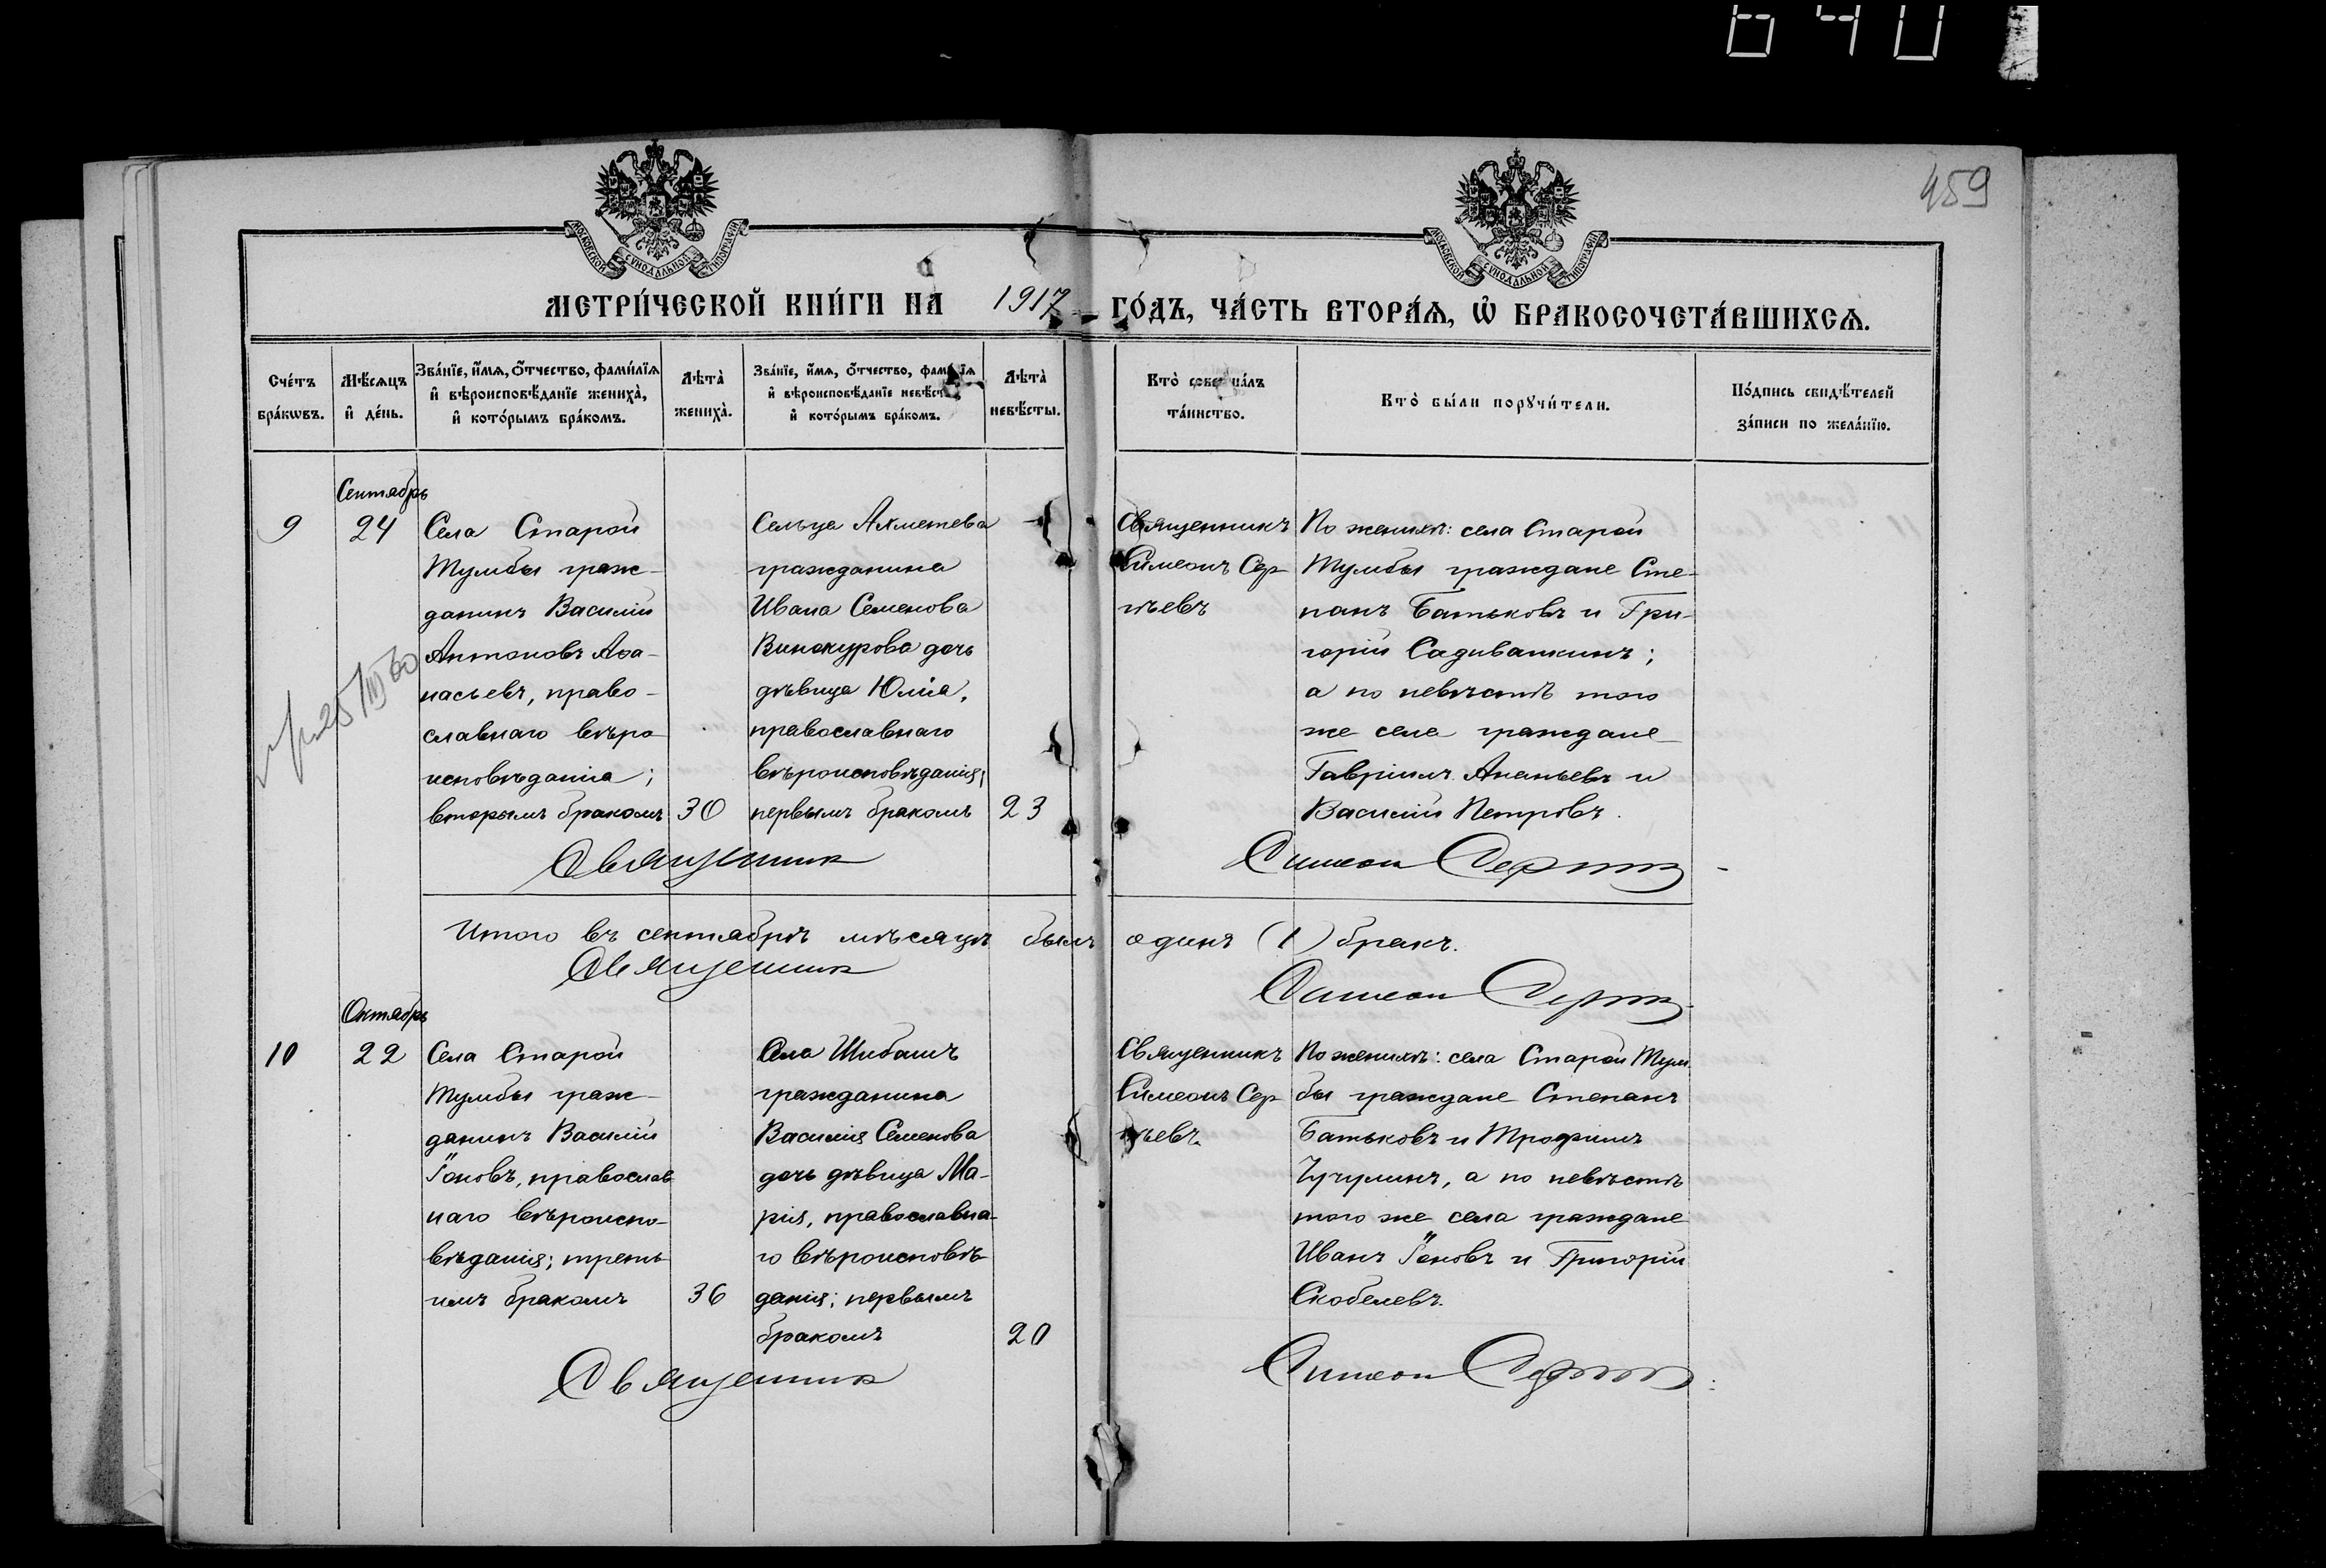 640
459
МОСКОВСКОЙ СУНОДАЛЬНОЙ ТИПОГРАФІИ
МОСКОВСКОЙ СУНОДАЛЬНОЙ ТИПОГРАФІИ
МЕТРИ́ЧЕСКОЙ КНИ́ГИ НА 1917 ГО́ДЪ, ЧА́СТЬ ВТОРА́Я, Ѡ БРАКОСОЧЕТА́ВШИХСЯ.
Сче́тъ
бра́кѡвъ.
Мѣ́сяцъ
и де́нь.
Зва́нїе, и́мя, о́тчество, фами́лїя
и вѣроисповѣ́данїе жениха̀,
и кото́рымъ бра́комъ.
Лѣта̀
жениха̀.
Зва́нїе, и́мя, о́тчество, фамилїя
и вѣроисповѣ́данїе невѣ́сты
и кото́рымъ бра́комъ.
Лѣта̀
невѣ́сты.
Кто̀ соверша́лъ
та́инство.
Кто̀ бы́ли порꙋчи́тели.
По́дпись свидѣ́телей
за́писи по жела́нїю.
Сентябрь
9
24
Села Старой
Тумбы граж-
данинъ Василій
Антоновъ Аѳа-
насьевъ, право-
славнаго вѣро
исповѣданія;
вторымъ бракомъ
30
Сельца Ахметева
гражданина
Ивана Семенова
Винокурова дочь
дѣвица Юлія,
православнаго
вѣроисповѣданія;
первымъ бракомъ
23
Священникъ
Симеонъ Сер
гѣевъ
По женихѣ: села Старой
Тумбы граждане Сте-
панъ Батьковъ и Гри-
горій Садиваткинъ;
а по невѣстѣ того
же села граждане
Гавріилъ Ананьевъ и
Василій Петровъ.
Священник Симеон Сергѣев
Итого въ сентябрѣ мѣсяцѣ былъ одинъ (1) бракъ.
Священник Симеон Сергѣев
Октябрь
10
22
Села Старой
Тумбы граж-
данинъ Василій
Іоновъ, православ
наго вѣроиспо-
вѣданія; треть
имъ бракомъ
36
Села Шибашъ
гражданина
Василія Семенова
дочь дѣвица Ма-
рія, православна-
го вѣроисповѣ-
данія; первымъ
бракомъ
20
Священникъ
Симеонъ Сер
гѣевъ
По женихѣ: села Старой Тум
бы граждане Степанъ
Батьковъ и Трофимъ
Чучулинъ, а по невѣстѣ
того же села граждане
Иванъ Іоновъ и Григорій
Скобелевъ.
Священник Симеон Сергѣев